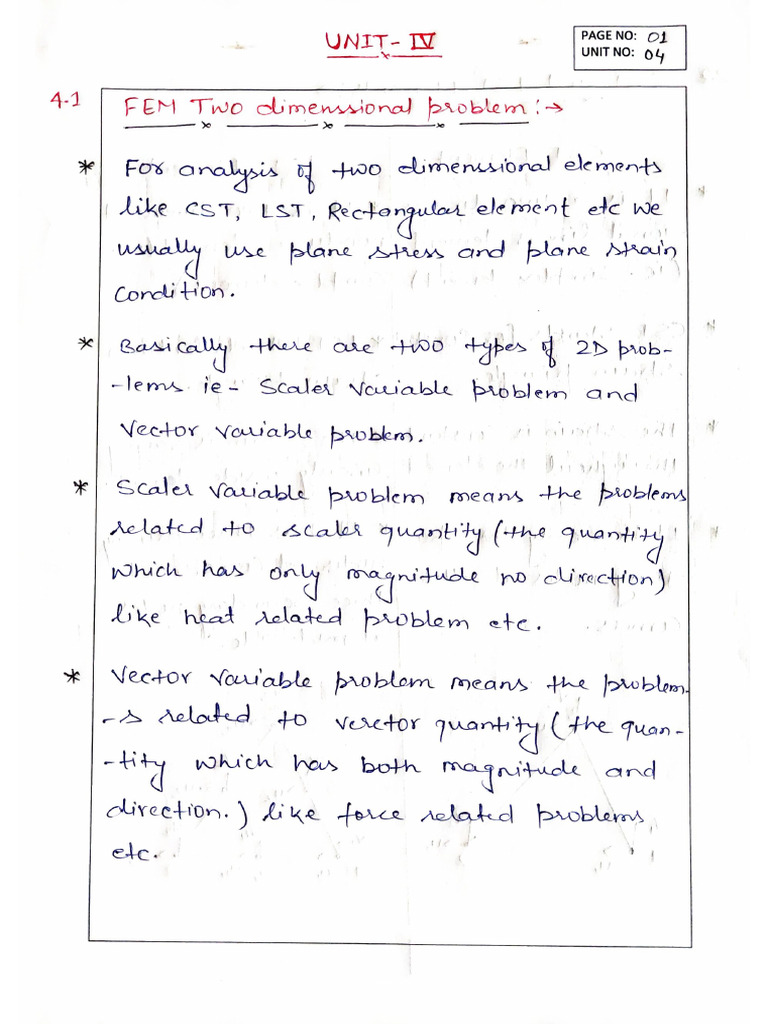 UNIT-IV
PAGE NO: 01
UNIT NO: 04
4.1 FEM Two dimenssional problem:→
* For analysis of two dimenssional elements
like CST, LST, Rectangular element etc we
usually use plane stress and plane strain
Condition.
* Basically there are two types of 2D prob-
-lems ie- Scaler variable problem and
Vector variable problem.
* Scaler variable problem means the problems
related to scaler quantity (the quantity
which has only magnitude no direction)
like heat related problem etc.
* Vector variable problem means the problem-
-s related to verctor quantity (the quan-
-tity which has both magnitude and
direction.) like force related problems
etc.